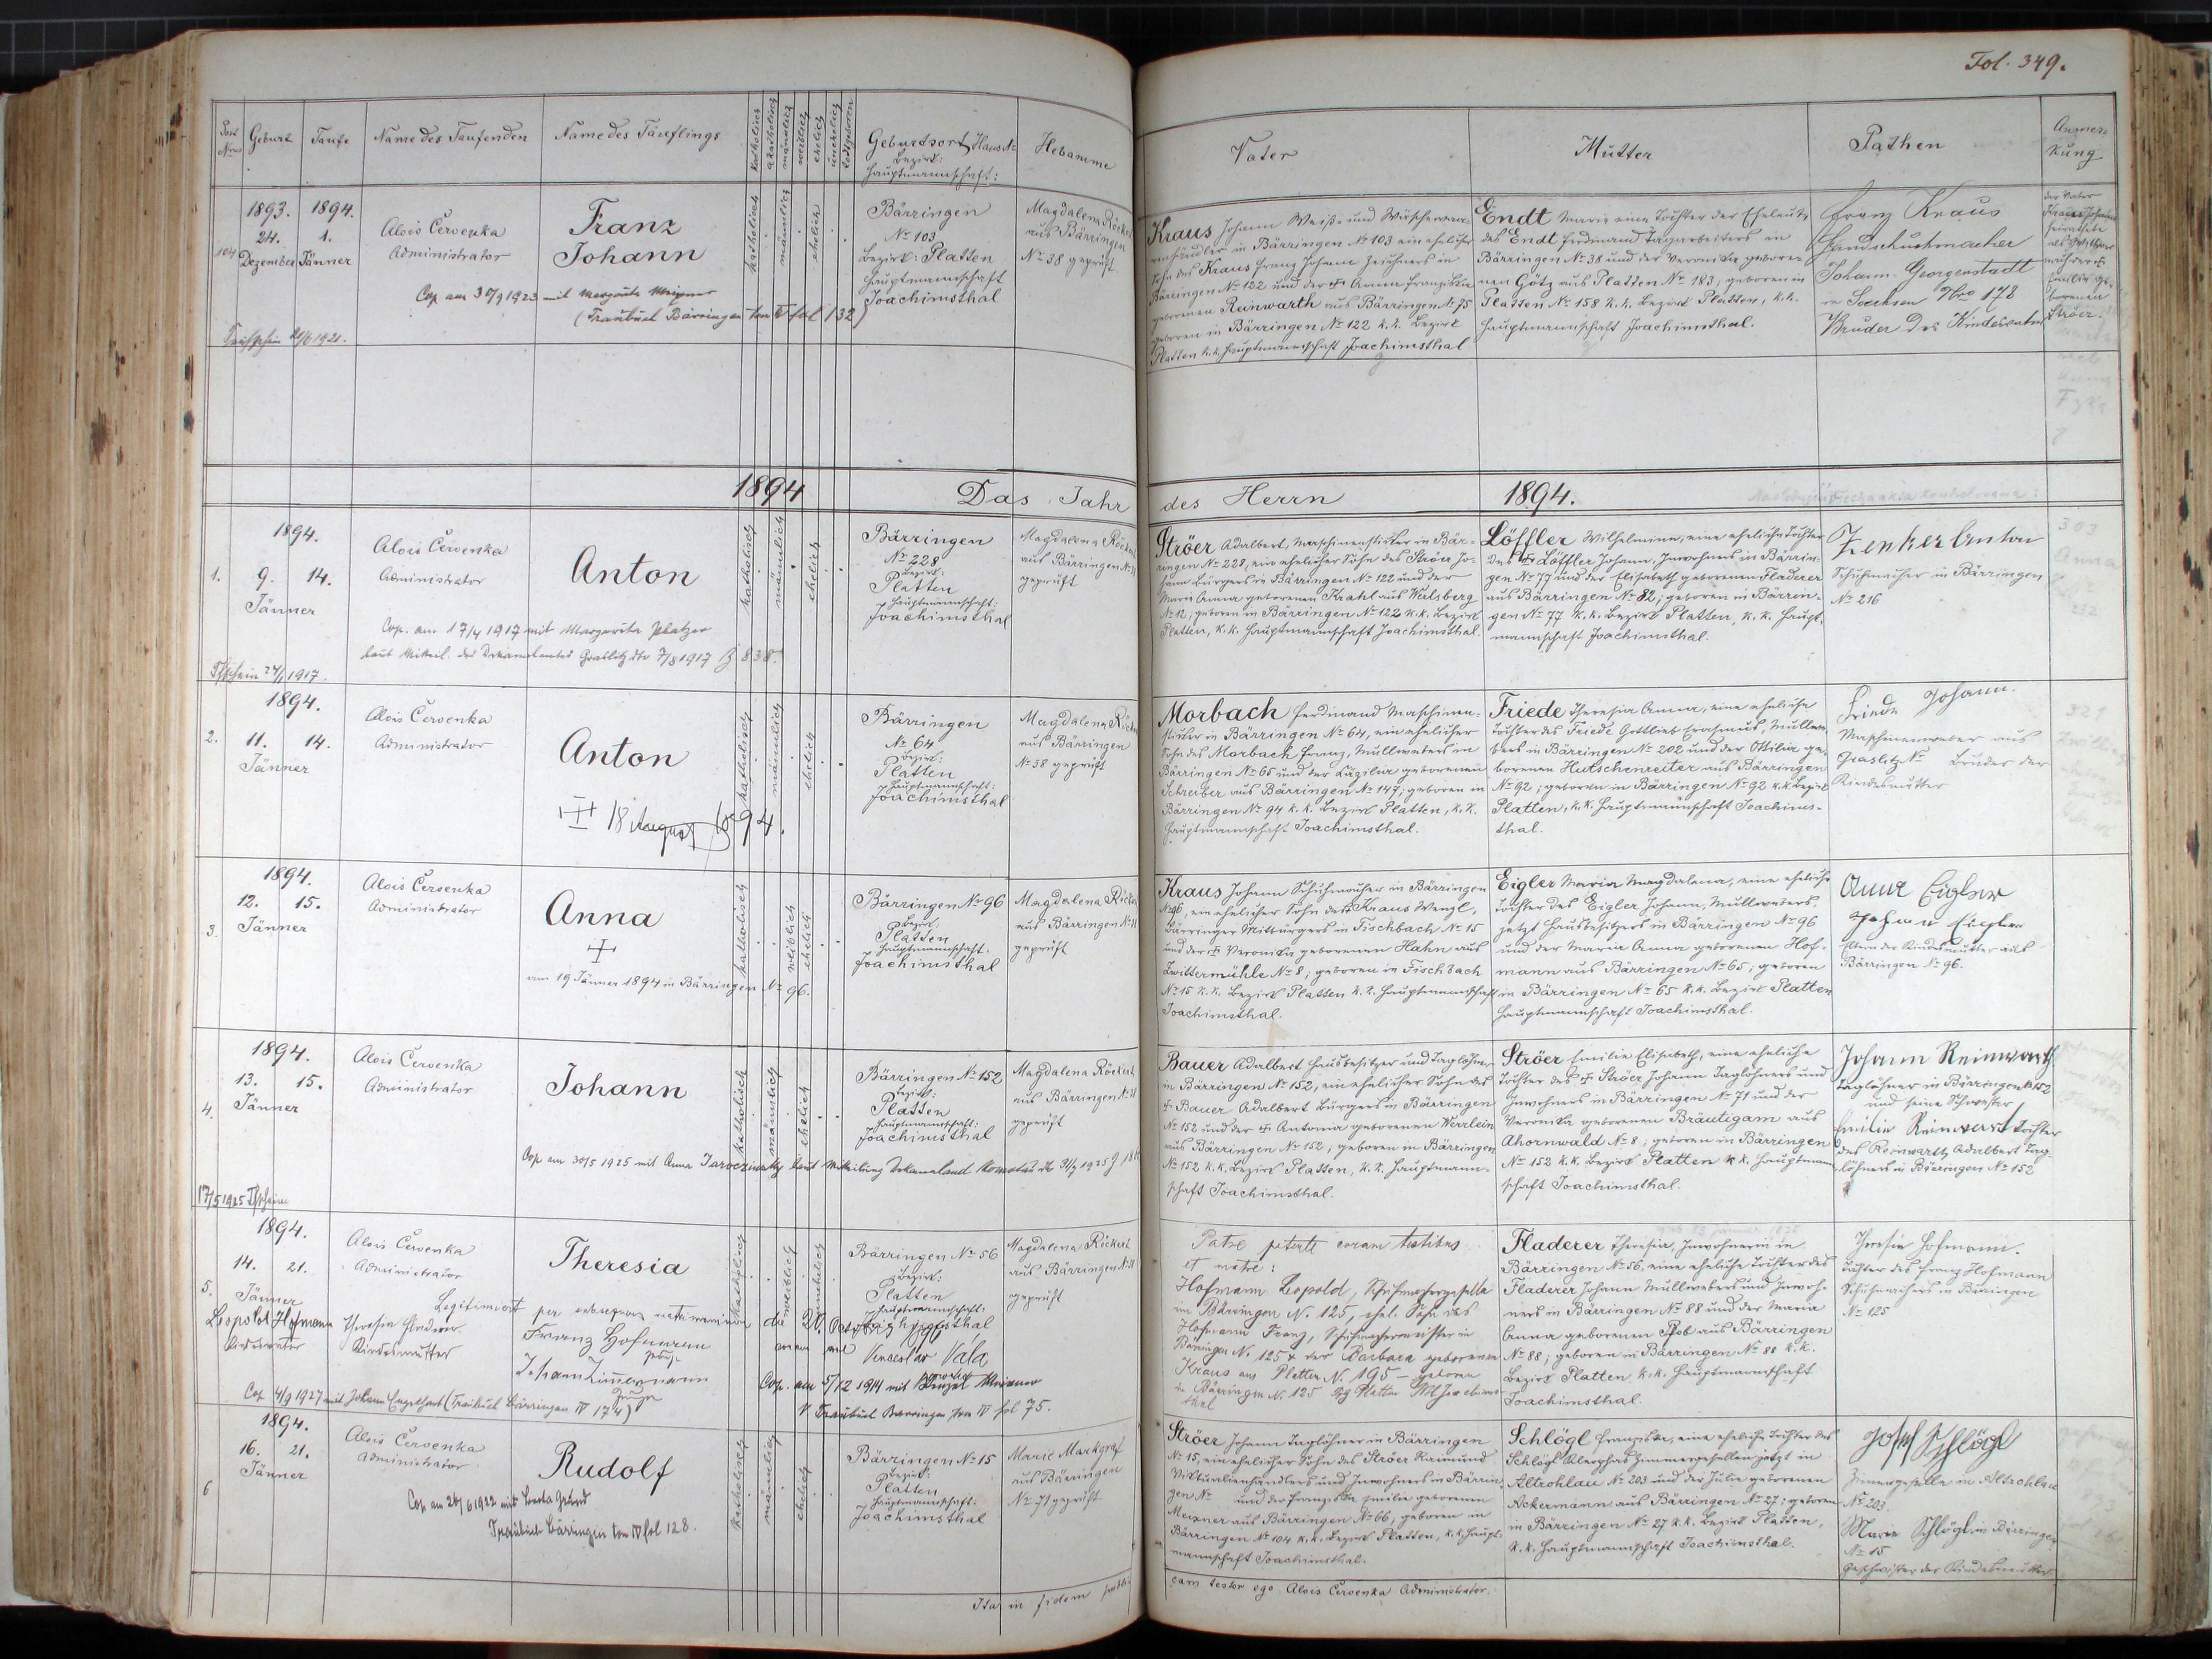 Fol. 349.
Geburt
Taufe
Name des Taufenden
Name des Täuflings
katholisch
akatholisch
männlich
weiblich
ehelich
unehelich
Geburtsort, Haus №
Bezirk:
Hauptmannschaft:
Hebamme
Vater
Mutter
Pathen
Anmerkung
1893. 1894.
24. 1.
Dezember Jänner
Alois Červenka
Administrator
Franz
Johann
Cop am 30/9 1923 mit
(Traubuch Bärringen tom IV fol 132)
katholisch
männlich
ehelich
Bärringen
№ 103
Bezirk: Platten
Hauptmannschaft
Joachimsthal
Magdalena Röckert
aus Bärringen
№ 38 geprüft
Kraus Johann Weiß- und
in Bärringen № 103 ein ehelicher
Sohn des Kraus Franz Johann in
Bärringen № 122 und der Anna Franziska
geborenen Reinwarth aus Bärringen № 75
geboren in Bärringen № 122 k.k. Bezirk
Platten k.k. Hauptmannschaft Joachimsthal
Endt Marie eine Tochter der Eheleute
des Endt Ferdinand Tagarbeiters in
Bärringen № 38 und der Veronika gebore-
nen Götz aus Platten № 183; geboren in
Platten № 158 k.k. Bezirk Platten, k.k.
Hauptmannschaft Joachimsthal.
Franz Kraus
Handschuhmacher
Johann-Georgenstadt
in Sachsen Nro 178
Bruder des Kindesvaters
1894
Das Jahr des Herrn 1894.
1894.
1. 9. 14.
Jänner
Alois Červenka
Administrator
Anton
Cop. am 17/4 1917 mit Margareta Platzer
laut Mitteil. des Dekanalamtes Graslitz dto 7/8 1917 Z 838.
katholisch
männlich
ehelich
Bärringen
№ 228
Bezirk:
Platten
Hauptmannschaft:
Joachimsthal
Magdalena Röckert
aus Bärringen
geprüft
Ströer Adalbert, Maschinensticker in Bär-
ringen № 228, ein ehelicher Sohn des Ströer Jo-
hann Bürgers in Bärringen № 122 und der
Maria Anna geborenen Krahl aus
№ 12; geboren in Bärringen № 122 k.k. Bezirk
Platten, k.k. Hauptmannschaft Joachimsthal.
Löffler Wilhelmine, eine eheliche Tochter
des Löffler Johann, Inwohners in Bärrin-
gen № 77 und der Elisabeth geborenen Fladerer
aus Bärringen № 82; geboren in Bärrin-
gen № 77 k.k. Bezirk Platten, k.k. Haupt-
mannschaft Joachimsthal.
Zenker Anton
Schuhmacher in Bärringen
№ 216
1894.
2. 11. 14.
Jänner
Alois Červenka
Administrator
Anton
18 August 1894.
katholisch
männlich
ehelich
Bärringen
№ 64
Bezirk:
Platten
Hauptmannschaft:
Joachimsthal
Magdalena
aus Bärringen
№ 38 geprüft
Morbach Ferdinand Maschinen-
sticker in Bärringen № 64, ein ehelicher
Sohn des Morbach Franz, Müllwebers in
Bärringen № 65 und der Cäzilia geborenen
Schreiber aus Bärringen № 147; geboren in
Bärringen № 94 k.k. Bezirk Platten, k.k.
Hauptmannschaft Joachimsthal.
Friede Theresia Anna, eine eheliche
Tochter des Friede Gottlieb Erasmus, Müllwe-
bers in Bärringen № 202 und der Ottilia ge-
borenen Hutschenreiter aus Bärringen
№ 92; geboren in Bärringen № 92 k.k. Bezirk
Platten, k.k. Hauptmannschaft Joachims-
thal.
Friede Johann.
Maschinenweber aus
Graslitz № Bruder der
Kindesmutter
1894.
3. 12. 15.
Jänner
Alois Červenka
Administrator
Anna
am 19 Jänner 1894 in Bärringen № 96.
katholisch
weiblich
ehelich
Bärringen № 96
Bezirk:
Platten
Hauptmannschaft:
Joachimsthal
Magdalena
aus Bärringen
geprüft
Kraus Johann Schuhmacher in Bärringen
№ 96, ein ehelicher Sohn des Kraus Wenzl,
Bärringer Mitbürgers in Fischbach № 15
und der Veronika geborenen Hahn aus
Zwittermühle № 8; geboren in Fischbach
№ 15 k.k. Bezirk Platten k.k. Hauptmannschaft
Joachimsthal.
Eigler Maria Magdalena, eine eheliche
Tochter des Eigler Johann, Müllwebers,
jetzt Hausbesitzers in Bärringen № 96
und der Maria Anna geborenen Hof-
mann aus Bärringen № 65; geboren
in Bärringen № 65 k.k. Bezirk Platten
Hauptmannschaft Joachimsthal.
Anna Eigler
Johann Eigler
Eltern der Kindesmutter aus
Bärringen № 96.
1894.
4. 13. 15.
Jänner
Alois Červenka
Administrator
Johann
Cop am 30/5 1925 mit Anna laut Mitteilung Dekanalamt Komotau
17/5 1925
katholisch
männlich
ehelich
Bärringen № 152
Bezirk:
Platten
Hauptmannschaft:
Joachimsthal
Magdalena Röckert
aus Bärringen
geprüft
Bauer Adalbert Hausbesitzer und Taglöhner
in Bärringen № 152, ein ehelicher Sohn des
Bauer Adalbert Bürgers in Bärringen
№ 152 und der Antonia geborenen Werrlein
aus Bärringen № 152; geboren in Bärringen
№ 152 k.k. Bezirk Platten, k.k. Hauptmann-
schaft Joachimsthal.
Ströer Emilie Elisabeth, eine eheliche
Tochter des Ströer Johann Taglöhners und
Inwohners in Bärringen № 71 und der
Veronika geborenen Bräutigam aus
Ahornwald № 8; geboren in Bärringen
№ 152 k.k. Bezirk Platten k.k. Hauptmann-
schaft Joachimsthal.
Johann Reinwarth
Taglöhner in Bärringen № 152
und seine Schwester
Emilie Reinwart Tochter
des Reinwarth Adalbert Tag-
löhners in Bärringen № 152
1894.
5. 14. 21.
Jänner
Alois Červenka
Administrator
Theresia
Legitimiert per subsequens matrimonium
Leopold Hofmann
Kindesvater
Theresia Fladerer
Kindesmutter
Franz Hofmann
Zeuge
Johann Zimmermann
Zeuge
Venceslav Vála
Cop. am 5/12 1914 mit Wenzel Meixner
Traubuch Bärringen tom IV fol 75.
Cop 4/9 1927 mit Johann Engelhart (Traubuch Bärringen IV 174)
katholisch
weiblich
unehelich
Bärringen № 56
Bezirk:
Platten
Hauptmannschaft:
Joachimsthal
Magdalena Röckert
aus Bärringen
geprüft
Patre petente coram testibus
et matre:
Hofmann Leopold, Schuhmachergeselle
in Bärringen N. 125, ehel. Sohn des
Hofmann Franz, Schuhmachermeister in
Bärringen N. 125 & der Barbara geborenen
Kraus aus Platten N. 195 – geboren
in Bärringen N. 125
Fladerer Theresia, Inwohnerin in
Bärringen № 56, eine eheliche Tochter des
Fladerer Johann Müllwebers und Inwoh-
ners in Bärringen № 88 und der Maria
Anna geborenen Pfob aus Bärringen
№ 88; geboren in Bärringen № 88 k.k.
Bezirk Platten k.k. Hauptmannschaft
Joachimsthal.
Theresia Hofmann.
Tochter des Franz Hofmann
Schuhmachers in Bärringen
№ 125
1894.
6 16. 21.
Jänner
Alois Červenka
Administrator
Rudolf
Cop am 26/6 1922 mit Berta Grund
Traubuch Bärringen tom IV fol 128.
katholisch
männlich
ehelich
Bärringen № 15
Bezirk:
Platten
Hauptmannschaft:
Joachimsthal
Marie Markgraf
aus Bärringen
№ 71 geprüft
Ströer Johann Taglöhner in Bärringen
№ 15, ein ehelicher Sohn des Ströer Raimund
Viktualienhändlers und Inwohners in Bärrin-
gen № und der Franziska Emilie geborenen
Meixner aus Bärringen № 66; geboren in
Bärringen № 104 k.k. Bezirk Platten, k.k. Haupt-
mannschaft Joachimsthal.
Schlögl Franziska, eine eheliche Tochter des
Schlögl Zimmergesellen jetzt in
Altrohlau № 203 und der Julie geborenen
Ackermann aus Bärringen № 27; geboren
in Bärringen № 27 k.k. Bezirk Platten,
k.k. Hauptmannschaft Joachimsthal.
Josef Schlögl
Zimmergeselle in Altrohlau
№ 203.
Marie Schlögl in Bärringen
№ 15
Geschwister der Kindesmutter
Ita in fidem publicam testor ego Alois Červenka Administrator.